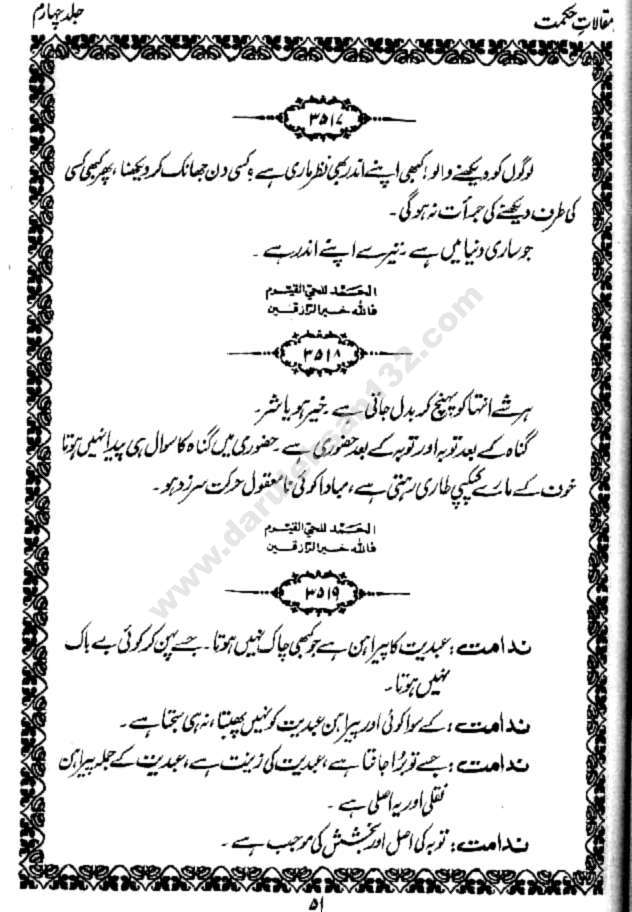 مقالاتِ حکمت
جلد چہارم
۳۵۱۷
لوگوں کو دیکھنے والو! کبھی اپنے اندر بھی نظر ماری ہے؟ کسی دن جھانک کر دیکھنا، پھر کبھی کسی
کی طرف دیکھنے کی جرأت نہ ہوگی۔
جو ساری دنیا میں ہے تیرے اپنے اندر ہے۔
الحَمْد للحیّ القیّوم
فاللہ خیر الرّازقین
۳۵۱۸
ہر شے انتہا کو پہنچ کر بدل جاتی ہے۔ خیر ہو یا شر۔
گناہ کے بعد توبہ اور توبہ کے بعد حضوری ہے۔ حضوری میں گناہ کا سوال ہی پیدا نہیں ہوتا
خوف کے مارے کپکپی طاری رہتی ہے، مبادا کوئی نامعقول حرکت سرزد ہو۔
الحَمْد للحیّ القیّوم
فاللہ خیر الرّازقین
۳۵۱۹
ندامت: عبدیت کا پیراہن ہے جو کبھی چاک نہیں ہوتا۔ جسے پہن کر کوئی بے باک
نہیں ہوتا۔
ندامت: کے سوا کوئی اور پیراہن عبدیت کو نہیں پھبتا، نہ ہی سجتا ہے۔
ندامت: جسے تو بُرا جانتا ہے، عبدیت کی زینت ہے، عبدیت کے جملہ پیراہن
نقلی اور یہ اصلی ہے۔
ندامت: توبہ کی اصل اور بخشش کی موجب ہے۔
۵۱
www.darulehsan432.com